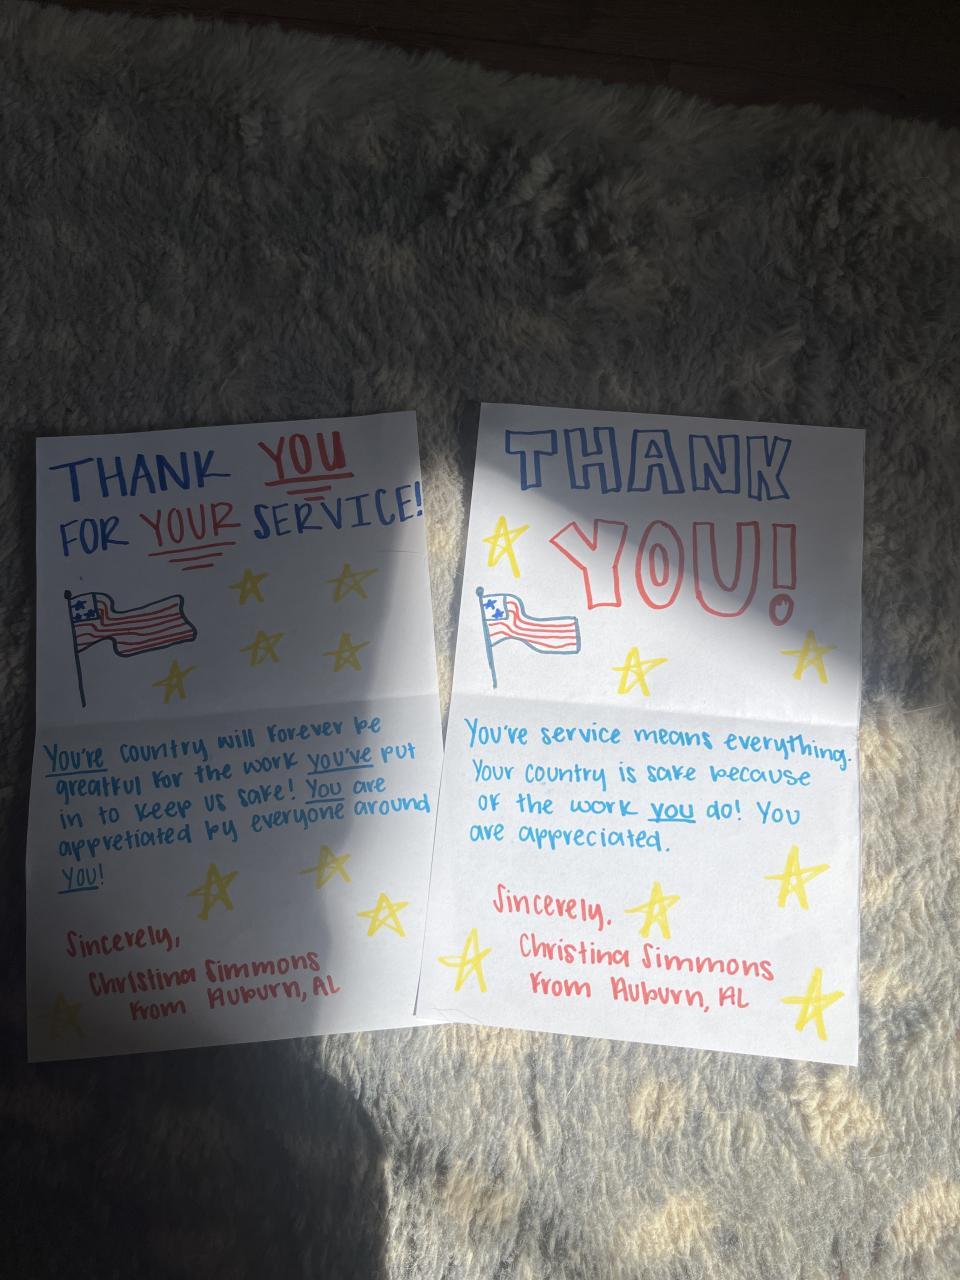 THANK YOU
FOR YOUR SERVICE!
You're country will forever be
greatful for the work you've put
in to keep us safe! You are
appretiated by everyone around
you!
Sincerely,
Christina Simmons
From Auburn, AL
THANK
YOU!
You're service means everything.
Your country is safe because
of the work you do! You
are appreciated.
Sincerely,
Christina Simmons
From Auburn, AL